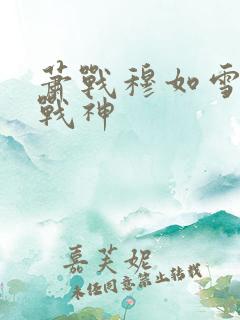 萧戰穆如雪
戰神
嘉芙妮
未经同意禁止转载